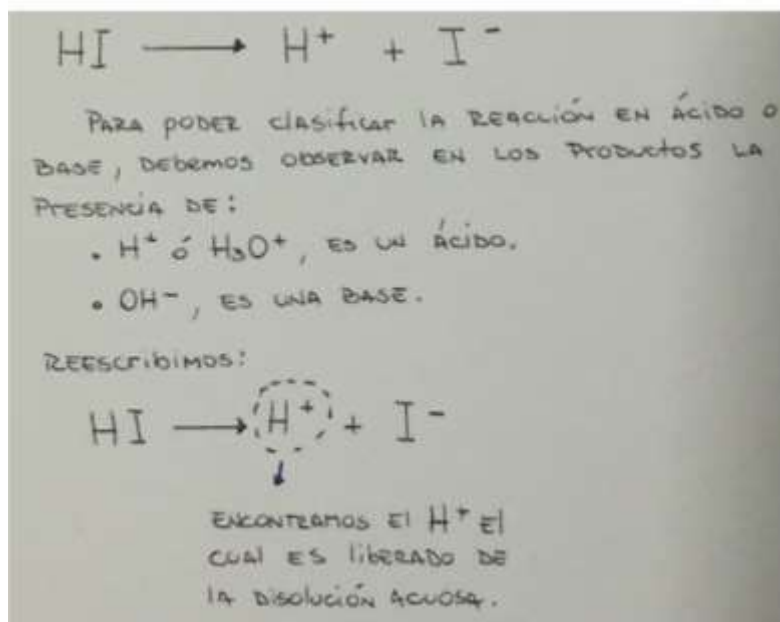 HI ⟶ H⁺ + I⁻
PARA PODER clasificar lA REACCIÓN EN ÁCIDO O
BASE, DEbEMOS OBSERVAR EN LOS PRODUCTOS LA
PRESENCIA DE:
• H⁺ ó H₃O⁺, ES UN ÁCIDO.
• OH⁻, ES UNA BASE.
REESCribiMOS:
HI ⟶ H⁺ + I⁻
ENCONTRAMOS El H⁺ El
CUAl ES libERADO DE
lA DISOLUCIÓN ACUOSA.